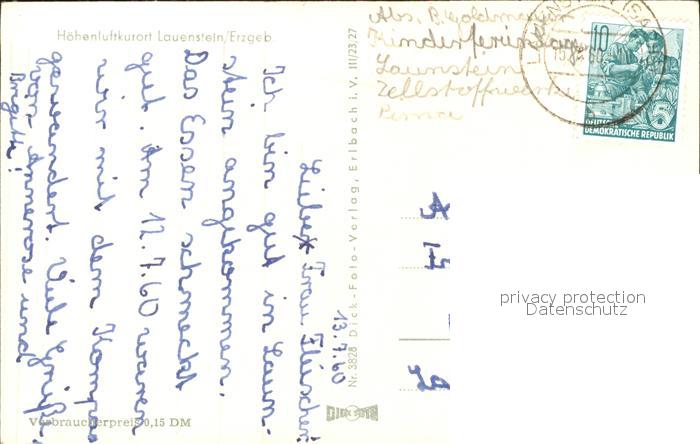 Höhenluftkurort Lauenstein/Erzgeb.
Abs. B. Goldmeyer
Kinderferienlager
Launstein
Zellstoffwerk
Pirna
10
DEUTSCHE
DEMOKRATISCHE REPUBLIK
5
13.7.60
Liebe Frau Fleischer!
Ich bin gut in Laun-
stein angekommen.
Das Essen schmeckt
gut. Am 12.7.60 waren
wir mit dem Kompass
gewandert. Viele Grüße
von Annerose und
Birgitt!
Nr. 3828 Dick-Foto-Verlag, Erlbach i. V. III/23,27
DICK FOTO
Verbraucherpreis 0,15 DM
privacy protection
Datenschutz